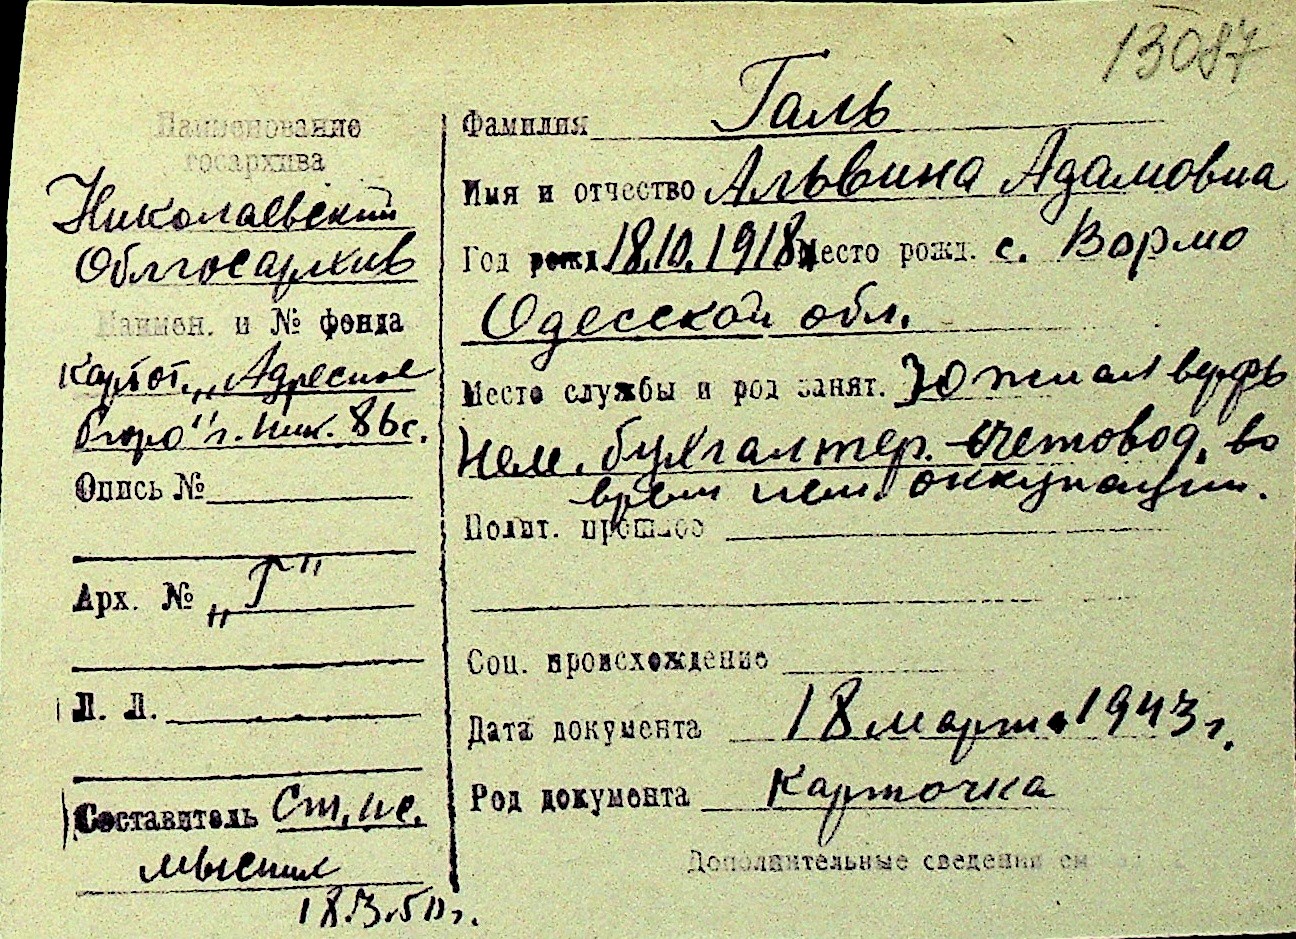 13087
Наименование
госархива
Николаевский
Облгосархив
Наимен. и № фонда
Картот. „Адресное
бюро" г. Ник. 86с.
Опись №
Арх. № „Г"
Л. Л.
Составитель Ст. нс.
18.3.50 г.
Фамилия Галь
Имя и отчество Альвина Адамовна
Год рожд. 18.10.1918 Место рожд. с. Вормс
Одесской обл.
Место службы и род занят. Южная верфь
Нем. бухгалтер-счетовод, во
время нем. оккупации.
Полит. прошлое
Соц. происхождение
Дата документа 18 марта 1943 г.
Род документа Карточка
Дополнительные сведения см